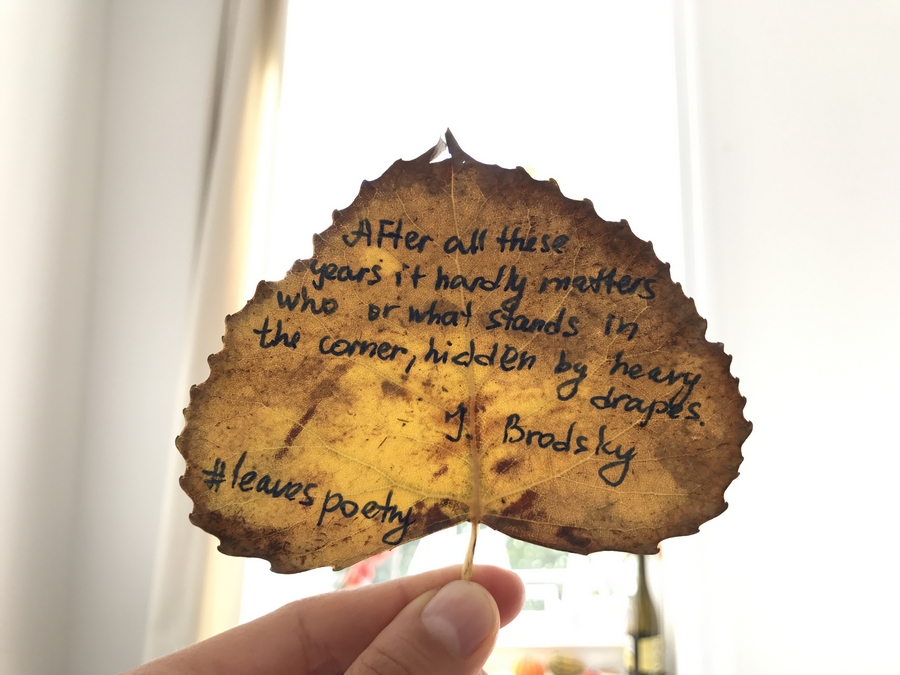 After all these
years it hardly matters
who or what stands in
the corner, hidden by heavy
drapes.
J. Brodsky
#leavespoetry